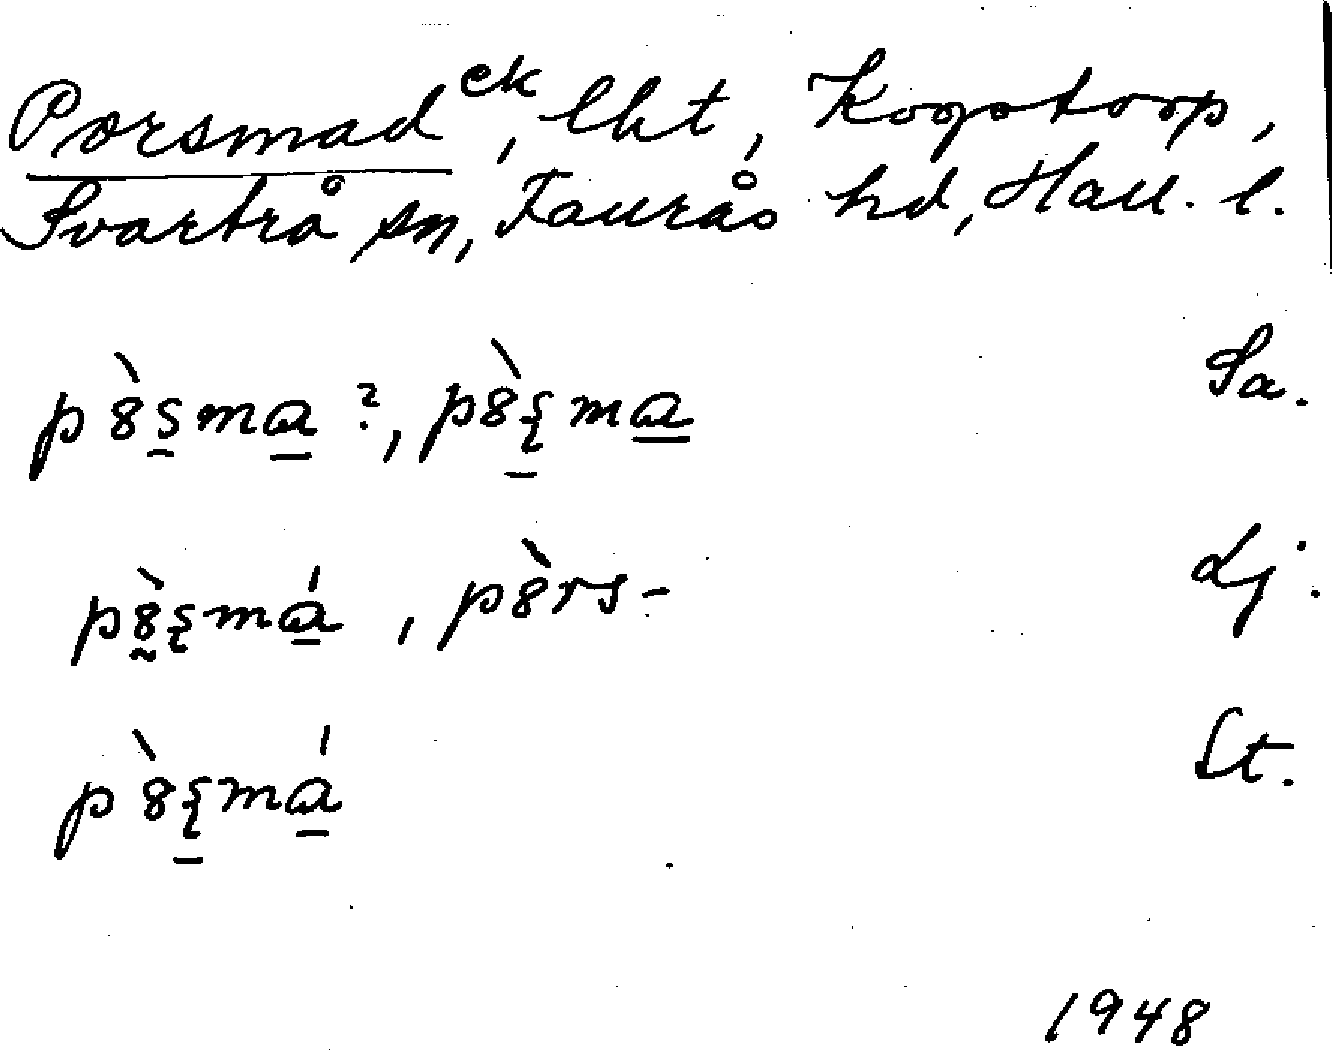 Porsmad ek, lht, Kogstorp,
Svartrå sn, Faurås hd, Hall. l.
p8̀s̠ma̠ ?, p8̀ʂ̠ma̠ Sa.
p8̰̀ʂmá̠, p8̀rs- Lj.
p8̀ʂ̠má̠ St.
1948